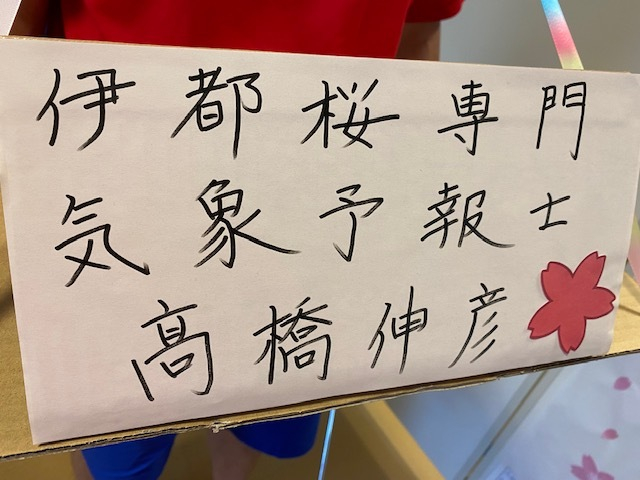 伊都桜専門
気象予報士
髙橋伸彦